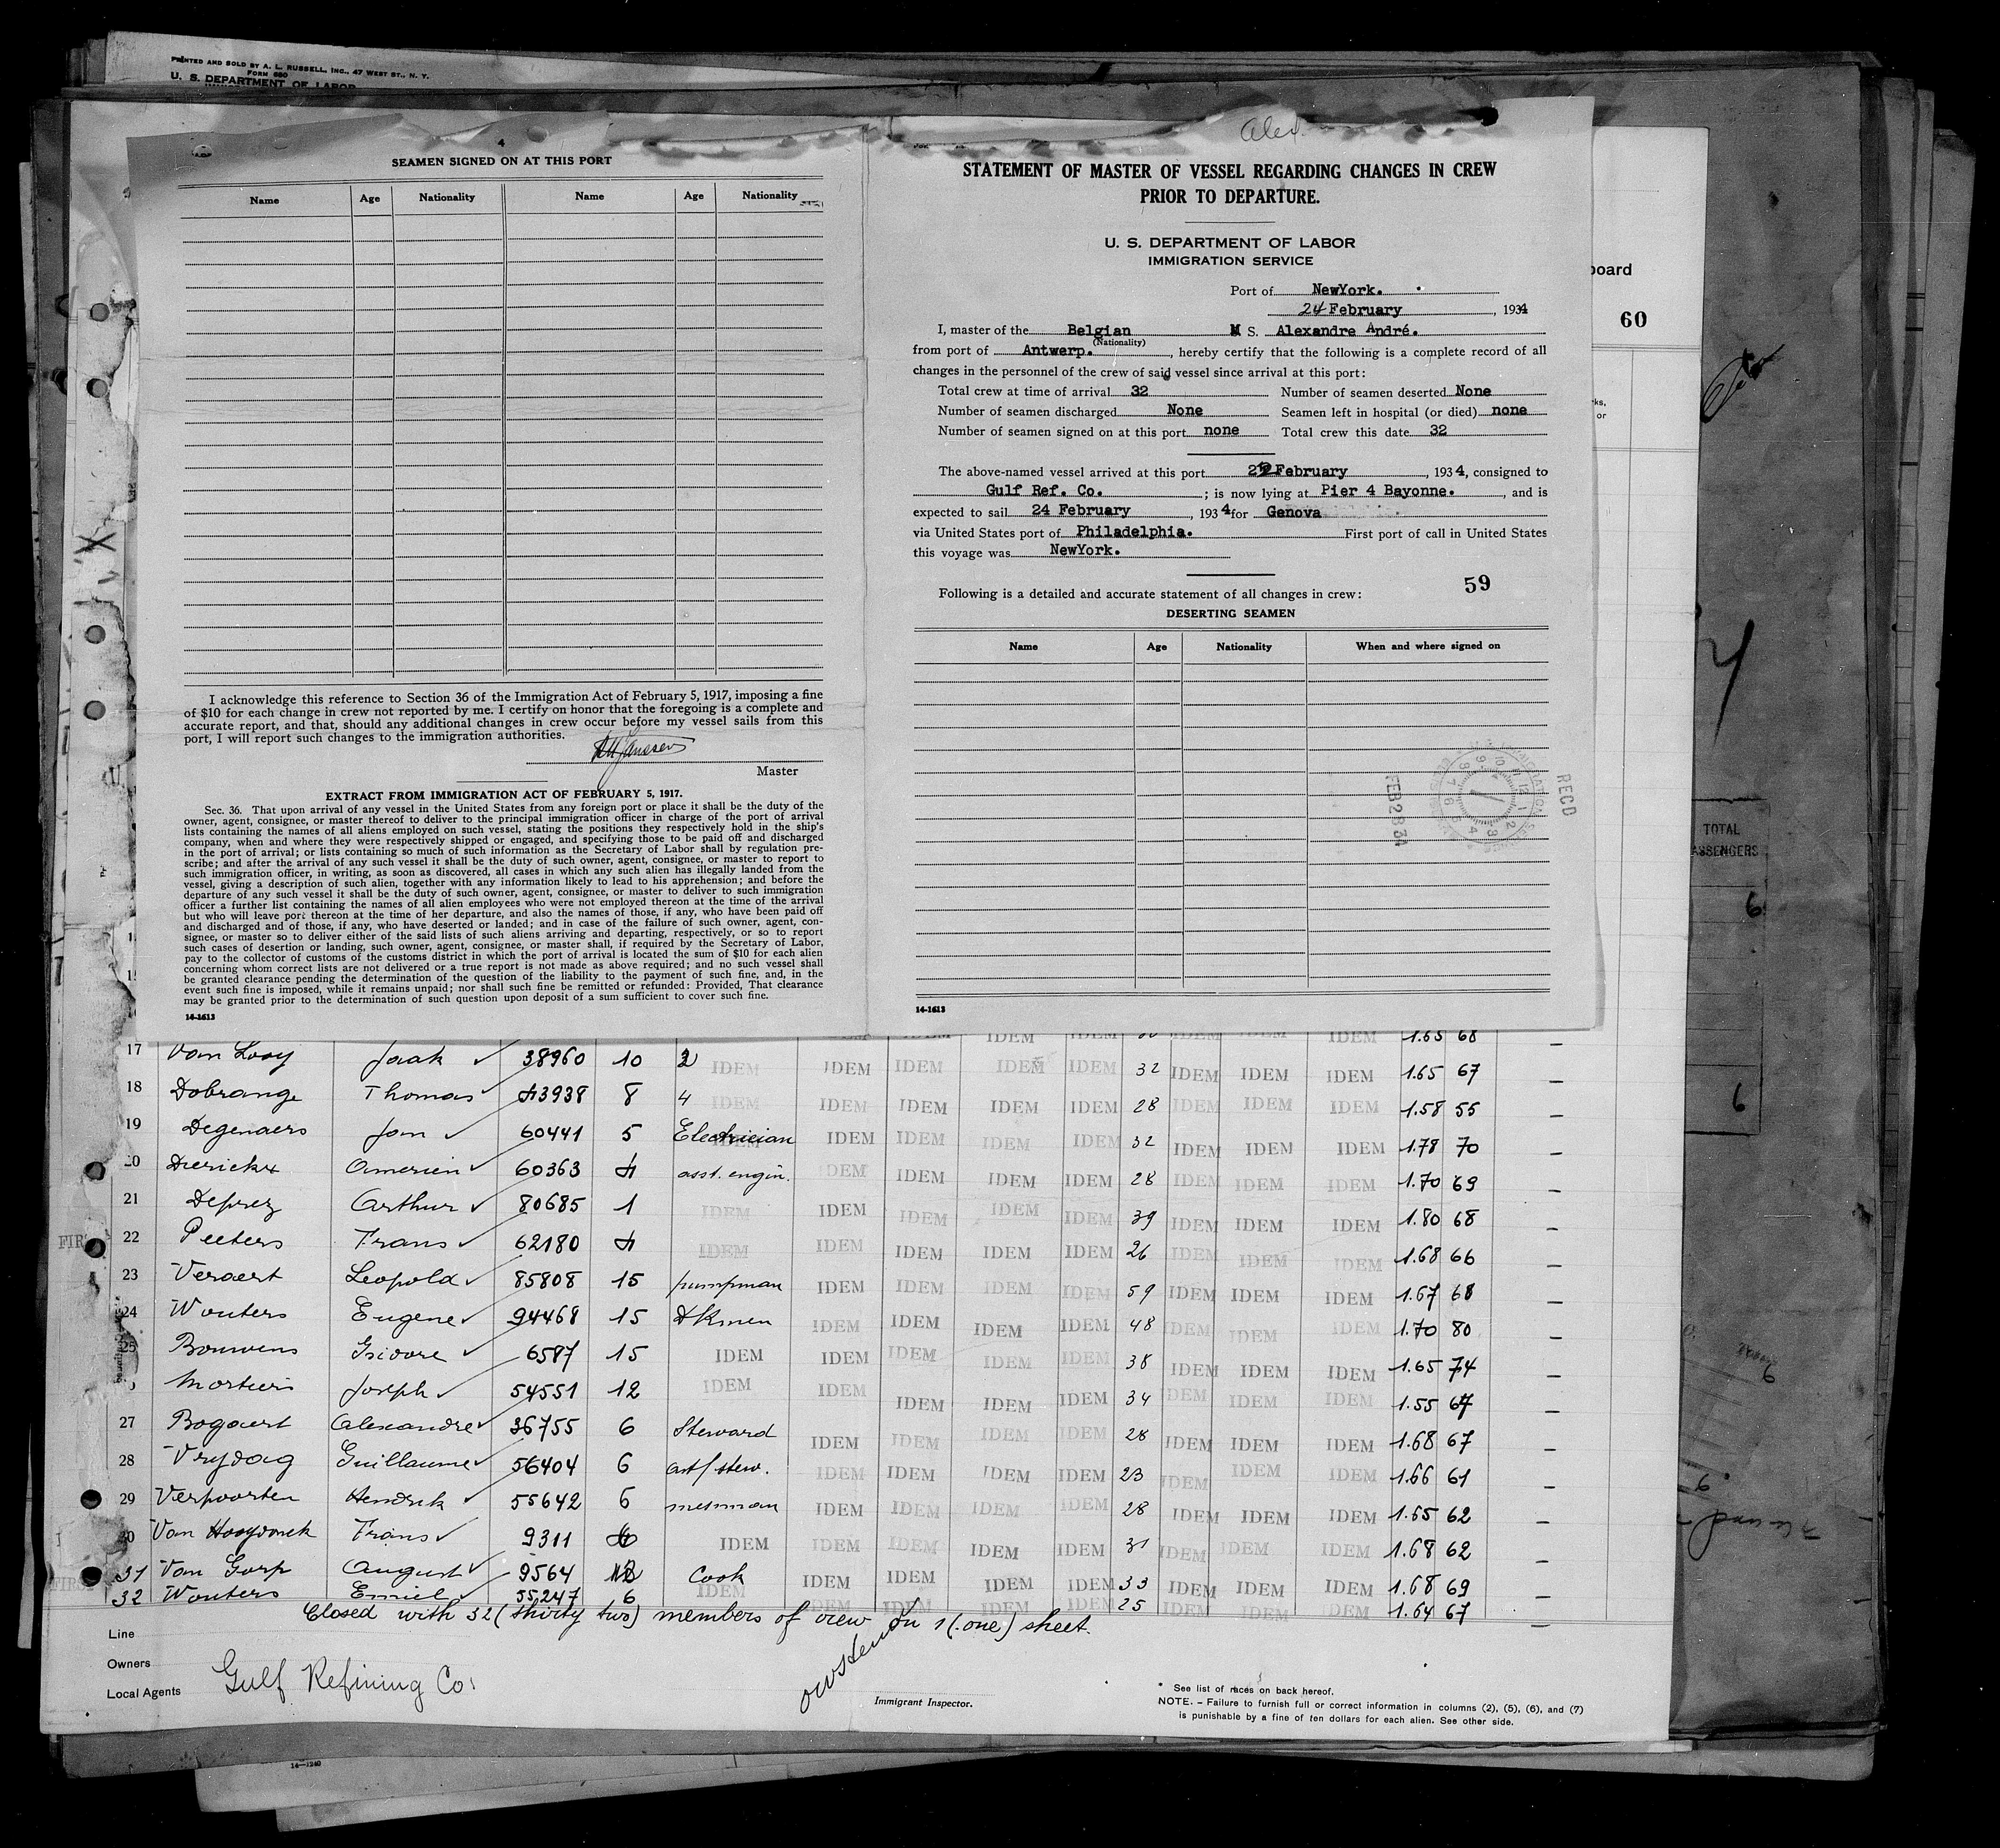 PRINTED AND SOLD BY A. L. RUSSELL, INC., 47 WEST ST., N. Y.
FORM 680
U. S. DEPARTMENT OF LABOR
4
SEAMEN SIGNED ON AT THIS PORT
Name Age Nationality Name Age Nationality
I acknowledge this reference to Section 36 of the Immigration Act of February 5, 1917, imposing a fine
of $10 for each change in crew not reported by me. I certify on honor that the foregoing is a complete and
accurate report, and that, should any additional changes in crew occur before my vessel sails from this
port, I will report such changes to the immigration authorities.
Janssens
Master
EXTRACT FROM IMMIGRATION ACT OF FEBRUARY 5, 1917.
Sec. 36. That upon arrival of any vessel in the United States from any foreign port or place it shall be the duty of the
owner, agent, consignee, or master thereof to deliver to the principal immigration officer in charge of the port of arrival
lists containing the names of all aliens employed on such vessel, stating the positions they respectively hold in the ship's
company, when and where they were respectively shipped or engaged, and specifying those to be paid off and discharged
in the port of arrival; or lists containing so much of such information as the Secretary of Labor shall by regulation pre-
scribe; and after the arrival of any such vessel it shall be the duty of such owner, agent, consignee, or master to report to
such immigration officer, in writing, as soon as discovered, all cases in which any such alien has illegally landed from the
vessel, giving a description of such alien, together with any information likely to lead to his apprehension; and before the
departure of any such vessel it shall be the duty of such owner, agent, consignee, or master to deliver to such immigration
officer a further list containing the names of all alien employees who were not employed thereon at the time of the arrival
but who will leave port thereon at the time of her departure, and also the names of those, if any, who have been paid off
and discharged and of those, if any, who have deserted or landed; and in case of the failure of such owner, agent, con-
signee, or master so to deliver either of the said lists of such aliens arriving and departing, respectively, or so to report
such cases of desertion or landing, such owner, agent, consignee, or master shall, if required by the Secretary of Labor,
pay to the collector of customs of the customs district in which the port of arrival is located the sum of $10 for each alien
concerning whom correct lists are not delivered or a true report is not made as above required; and no such vessel shall
be granted clearance pending the determination of the question of the liability to the payment of such fine, and, in the
event such fine is imposed, while it remains unpaid; nor shall such fine be remitted or refunded: Provided, That clearance
may be granted prior to the determination of such question upon deposit of a sum sufficient to cover such fine.
14-1613
Alex.
STATEMENT OF MASTER OF VESSEL REGARDING CHANGES IN CREW
PRIOR TO DEPARTURE.
U. S. DEPARTMENT OF LABOR
IMMIGRATION SERVICE
Port of NewYork.
24 February, 1934
I, master of the Belgian M S. Alexandre André.
(Nationality)
from port of Antwerp., hereby certify that the following is a complete record of all
changes in the personnel of the crew of said vessel since arrival at this port:
Total crew at time of arrival 32 Number of seamen deserted None
Number of seamen discharged None Seamen left in hospital (or died) none
Number of seamen signed on at this port none Total crew this date 32
The above-named vessel arrived at this port 22 February, 1934, consigned to
Gulf Ref. Co.; is now lying at Pier 4 Bayonne., and is
expected to sail 24 February, 1934 for Genova
via United States port of Philadelphia. First port of call in United States
this voyage was NewYork.
59
Following is a detailed and accurate statement of all changes in crew:
DESERTING SEAMEN
Name Age Nationality When and where signed on
RECD
FEB 28 34
14-1613
board
60
TOTAL
PASSENGERS
6
6
IDEM IDEM 1.65 68
17 Van Looy Jaak 38960 10 3 IDEM IDEM IDEM IDEM IDEM 32 IDEM IDEM IDEM 1.65 67 —
18 Dobrange Thomas 43938 8 4 IDEM IDEM IDEM IDEM IDEM 28 IDEM IDEM IDEM 1.58 55 —
19 Degenaers Jan 60441 5 Electrician IDEM IDEM IDEM IDEM 32 IDEM IDEM IDEM 1.78 70 —
20 Dierickx Omerien 60363 4 asst. engin. IDEM IDEM IDEM IDEM 28 IDEM IDEM IDEM 1.70 69 —
21 Deprez Arthur 80685 1 IDEM IDEM IDEM IDEM IDEM 39 IDEM IDEM IDEM 1.80 68 —
22 Peeters Frans 62180 4 IDEM IDEM IDEM IDEM IDEM 26 IDEM IDEM IDEM 1.68 66 —
23 Veraert Leopold 85808 15 pumpman IDEM IDEM IDEM IDEM 59 IDEM IDEM IDEM 1.67 68 —
24 Wouters Eugene 94468 15 Dkmen IDEM IDEM IDEM IDEM 48 IDEM IDEM IDEM 1.70 80 —
25 Bouwens Isidore 6587 15 IDEM IDEM IDEM IDEM IDEM 38 IDEM IDEM IDEM 1.65 74 —
Mortiers Joseph 54551 12 IDEM IDEM IDEM IDEM IDEM 34 IDEM IDEM IDEM 1.55 67 —
27 Bogaert Alexandre 36755 6 Steward IDEM IDEM IDEM IDEM 28 IDEM IDEM IDEM 1.68 67 —
28 Vrydag Guillaume 56404 6 ast/stew. IDEM IDEM IDEM IDEM 23 IDEM IDEM IDEM 1.66 61 —
29 Verpoorten Hendrik 55642 6 messman IDEM IDEM IDEM IDEM 28 IDEM IDEM IDEM 1.65 62 —
30 Van Hooydonck Frans 9311 6 IDEM IDEM IDEM IDEM IDEM 31 IDEM IDEM IDEM 1.68 62 —
31 Van Gorp August 9564 12 Cook IDEM IDEM IDEM IDEM 33 IDEM IDEM IDEM 1.68 69 —
32 Wouters Emiel 55247 6 IDEM IDEM IDEM IDEM IDEM 25 IDEM IDEM IDEM 1.64 67 —
Closed with 32 (thirty two) members of crew on 1 (one) sheet.
Line
Owners
Local Agents Gulf Refining Co.
Immigrant Inspector.
* See list of races on back hereof.
NOTE. – Failure to furnish full or correct information in columns (2), (5), (6), and (7)
is punishable by a fine of ten dollars for each alien. See other side.
14-1240